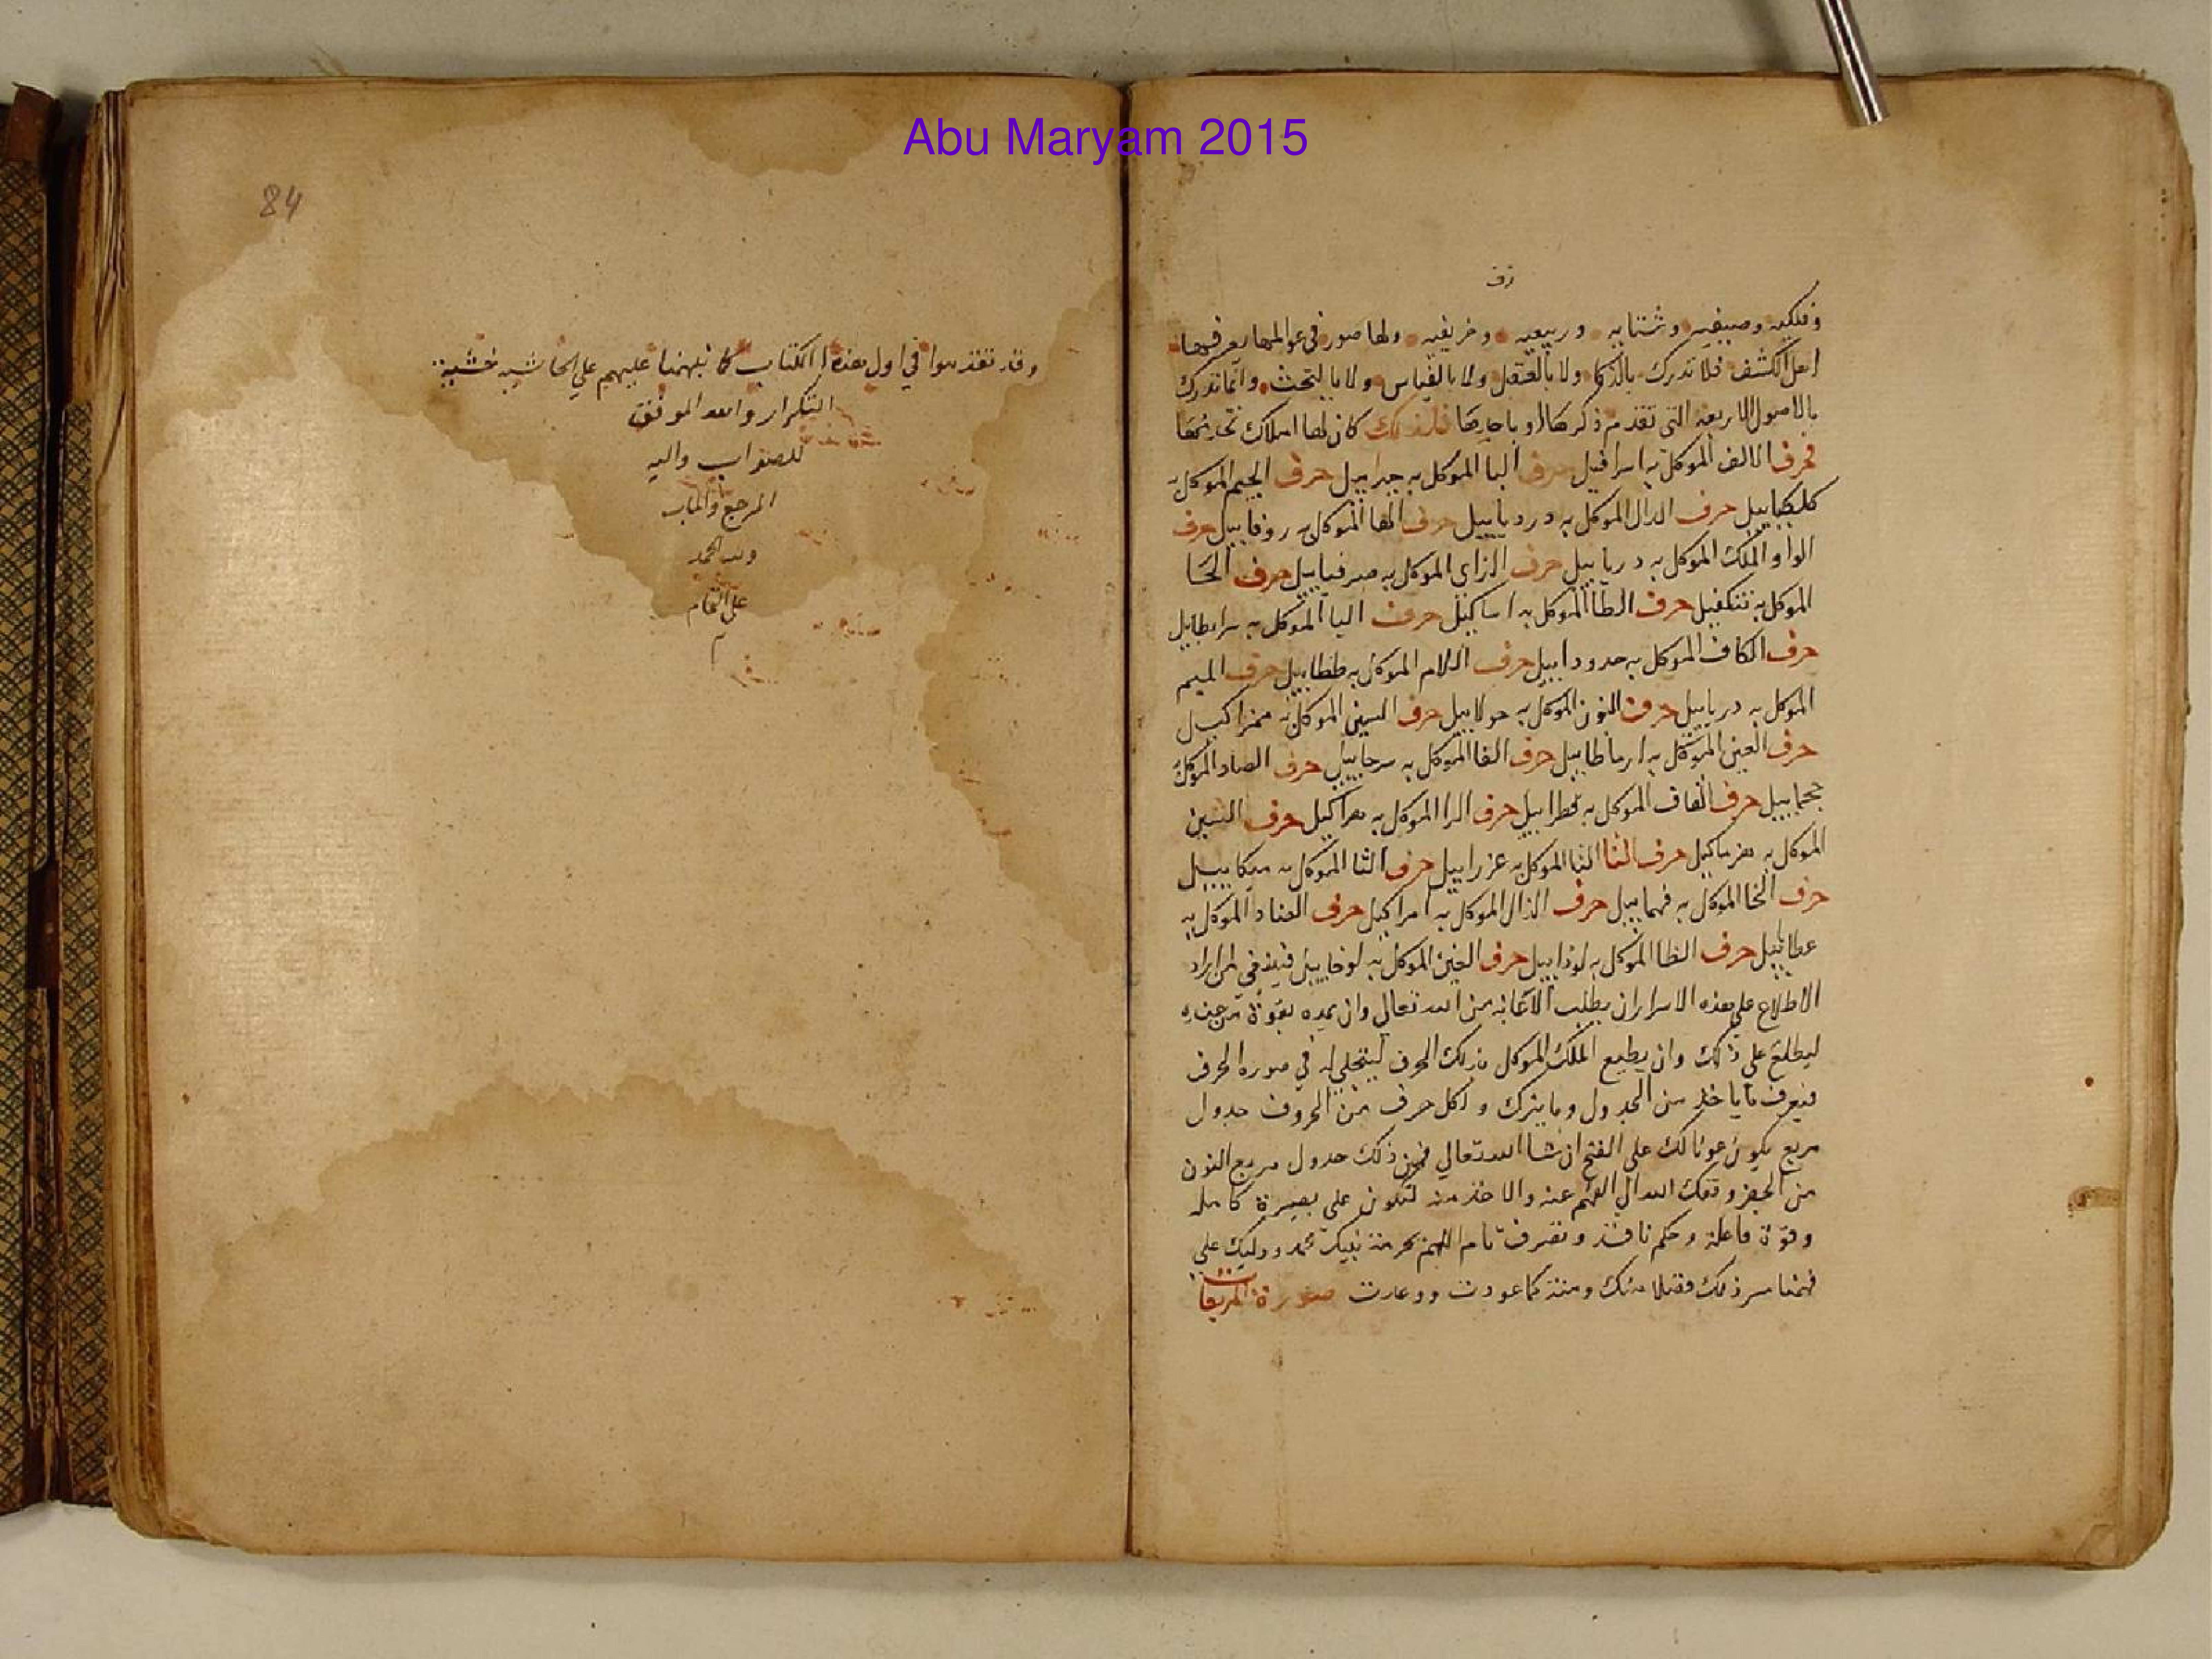 Abu Maryam 2015
وقف
وفلكيه وصيفيه وشتايه وربيعيه وخريفيه ولها صور في عوالمها يعرفها
اهل الكشف فلا تدرك بالذكا ولا بالعقل ولا بالقياس ولا بالبحث وانما تدرك
بالاصول الاربعة التي تقدم ذكرها او باحدها فلذلك كان لها املاك
فحرف الالف الموكل به اسرافيل حرف البا الموكل به جبراييل حرف الجيم الموكل به
كلكياييل حرف الدال الموكل به درداييل حرف الها الموكل به روقاييل حرف
الواو الملك الموكل به درياييل حرف الزاي الموكل به صرفياييل حرف الحا
الموكل به تنكفيل حرف الطا الموكل به اساكيل حرف اليا الموكل به سرابطايل
حرف الكاف الموكل به حدوداييل حرف اللام الموكل به طظاييل حرف الميم
الموكل به درياييل حرف النون الموكل به حولاييل حرف السين الموكل به
حرف العين الموكل به حرف الفا الموكل به سرحاييل حرف الصاد الموكل به
حرف القاف الموكل به قطراييل حرف الرا الموكل به هراكيل حرف الشين
الموكل به حرف التا التا الموكل به عزراييل حرف الثا الموكل به ميكاييل
حرف الخا الموكل به فهماييل حرف الذال الموكل به امراكيل حرف الضاد الموكل به
عطاييل حرف الظا الموكل به لوذاييل حرف الغين الموكل به لوخاييل فينبغي لمن اراد
الاطلاع علي هذه الاسرار ان يطلب الاعانة من الله تعالي وان يمده بقوة من عنده
ليطلع علي ذلك وان يطيع الملك الموكل بذلك الحرف ليتجلي له في صورة الحرف
فيعرف ما ياخذ من الجدول وما يترك ولكل حرف من الحروف جدول
مربع يكون عونا لك علي الفتح ان شا الله تعالي فمن ذلك جدول مربع النون
من الجفر وفقك الله الي الفهم عنه والاخذ منه لتكون علي بصيرة كامله
وقوة فاعلة وحكم نافذ وتصرف تام اللهم بحرمة نبيك محمد ووليك علي
فهمنا سر ذلك فضلا منك ومنة كما عودت ووعدت صورة المربعات
84
وقد تقدموا في اول هذا الكتاب كما نبهنا عليهم علي الحاشيه خشية
التكرار والله الموفق
للصواب واليه
المرجع والماب
ولله الحمد
علي التمام
م